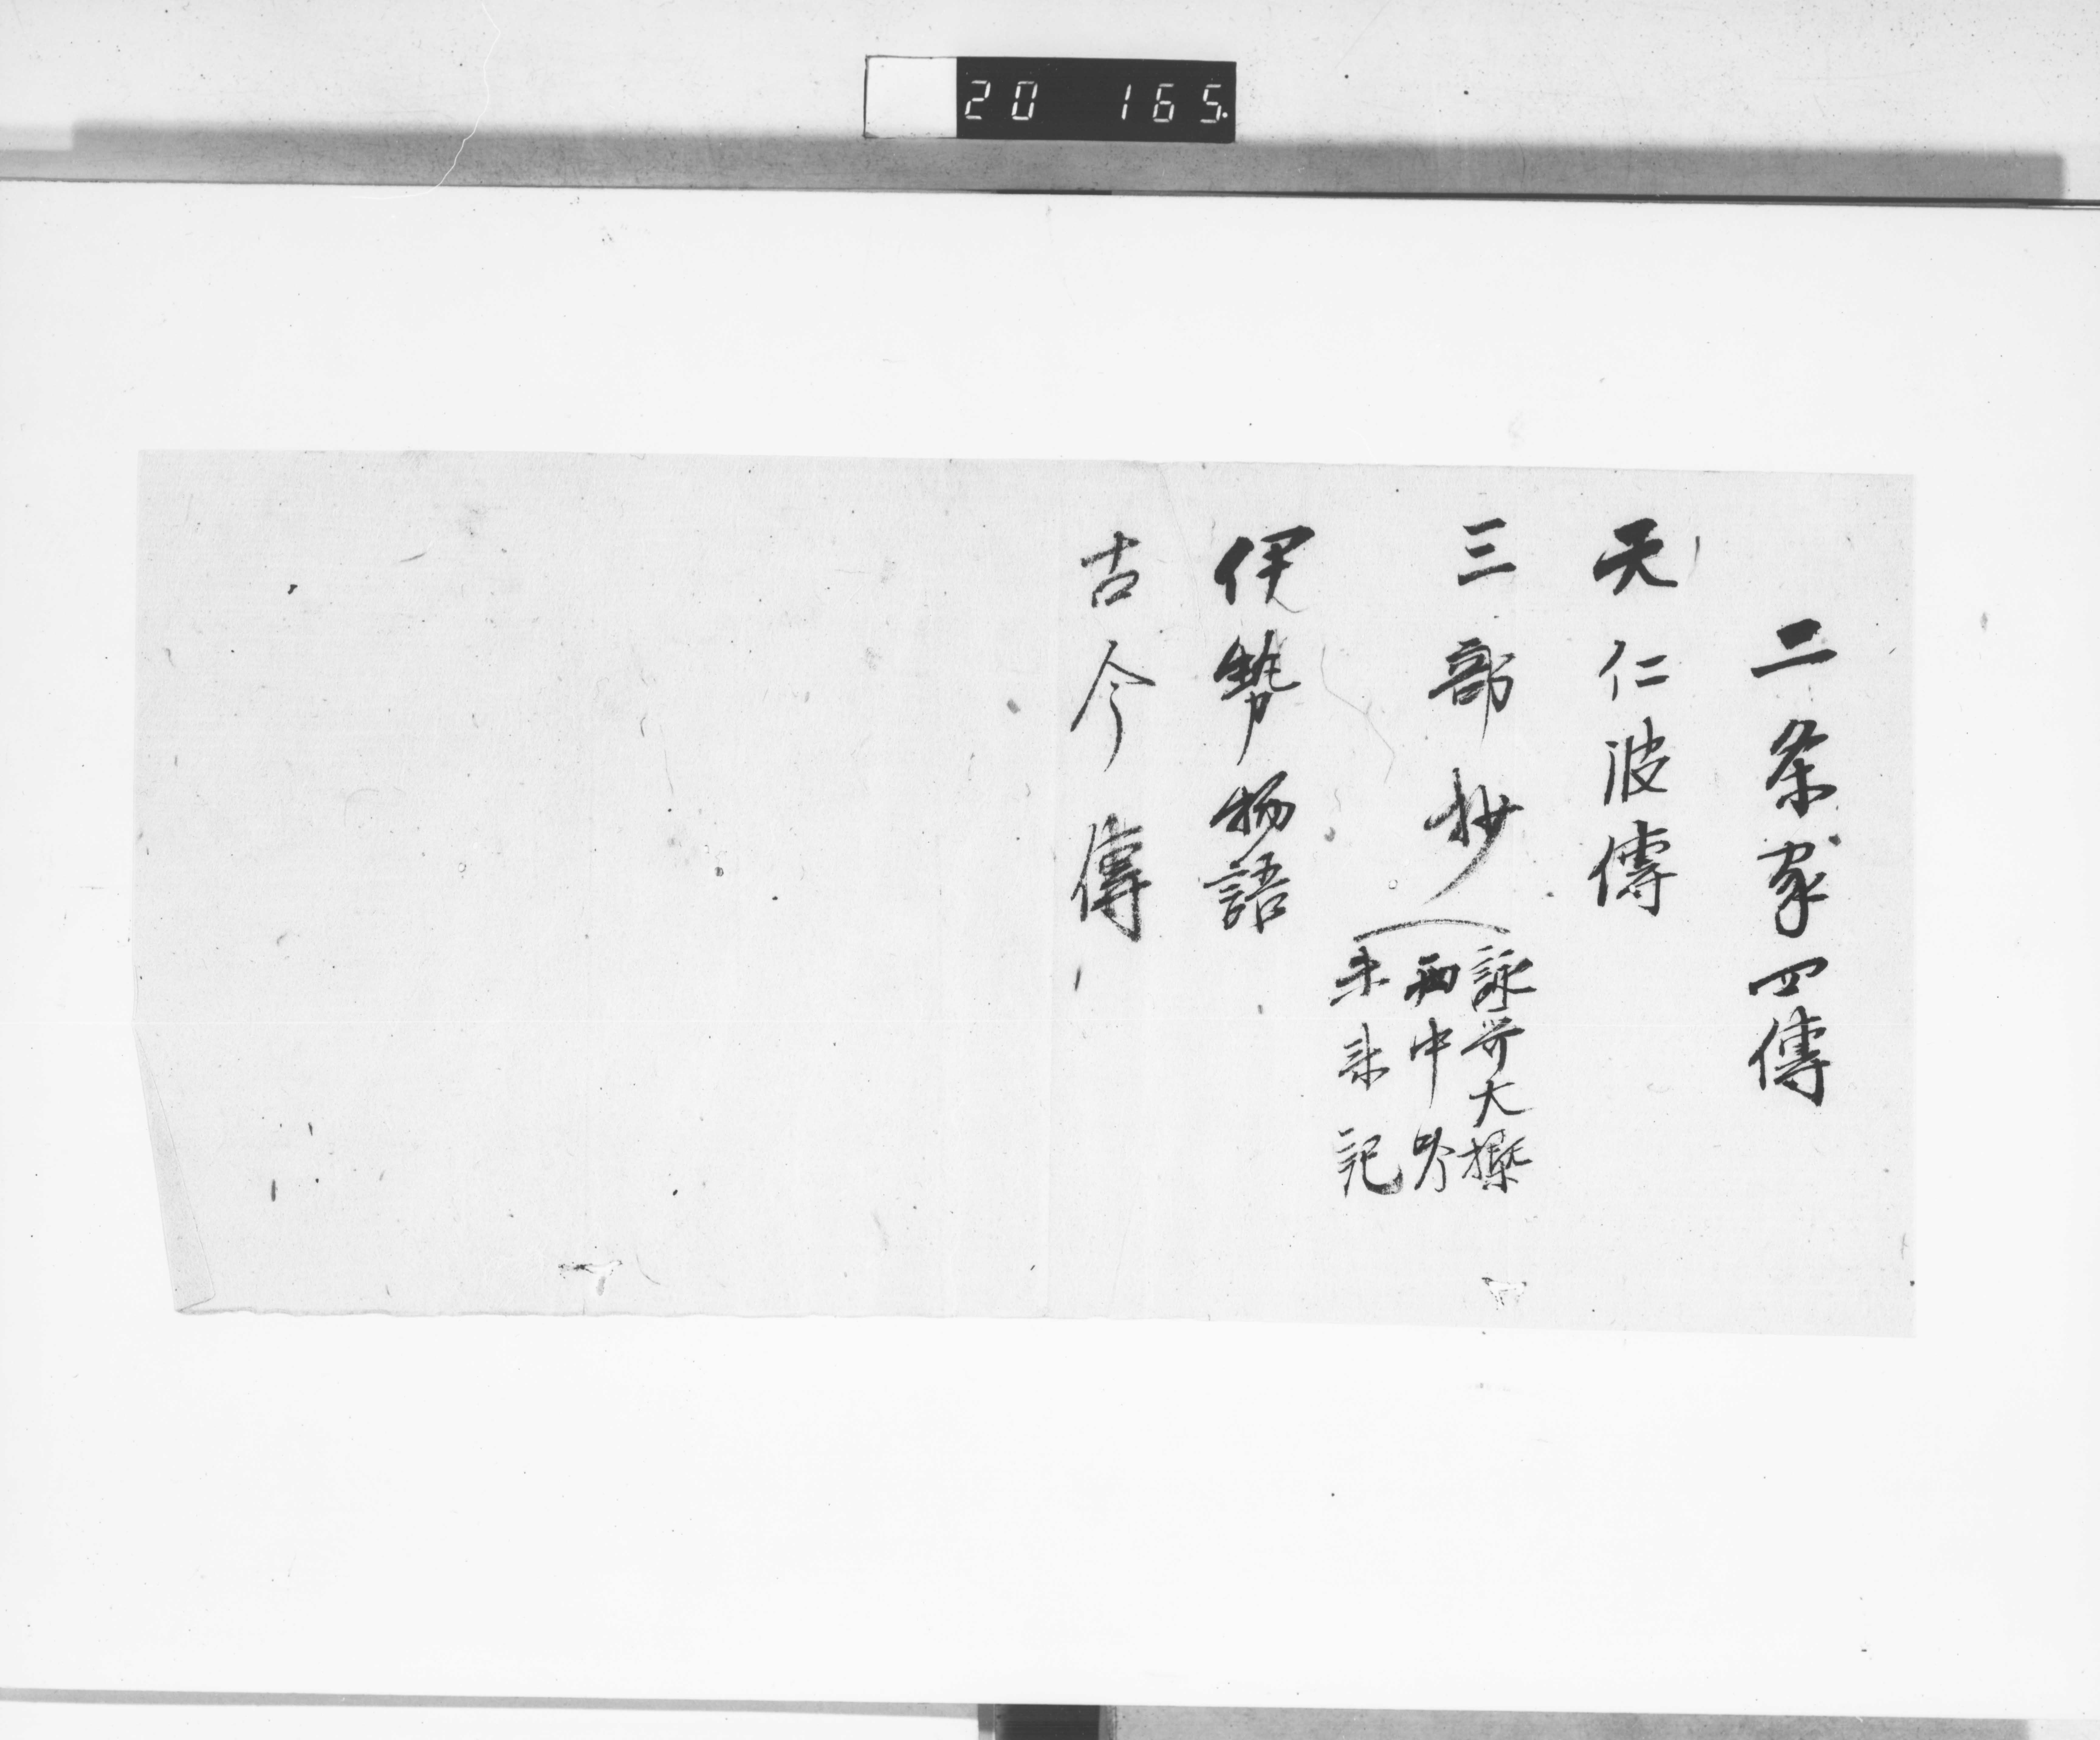 20 165.
二条家四傳
天仁波傳
三部抄
詠哥大概
雨中吟
未来記
伊勢物語
古今傳